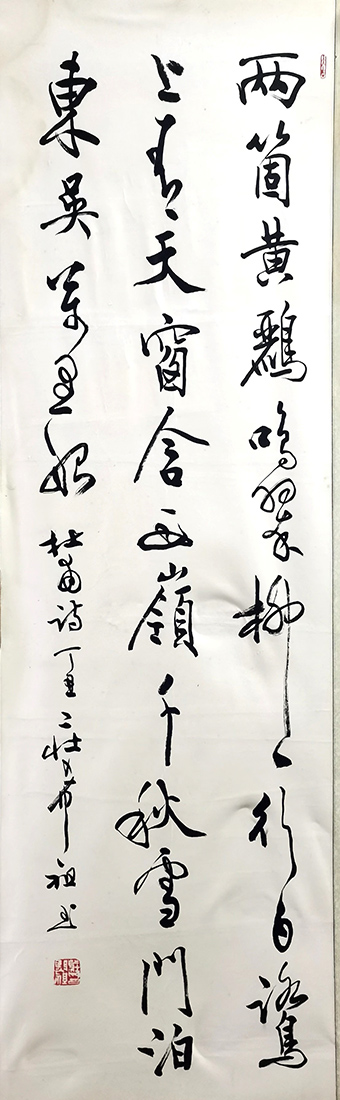 两箇黄鸝鳴翠柳一行白鷺
上青天窗含西嶺千秋雪門泊
東吳萬里船 杜甫诗 丁丑 希祖书